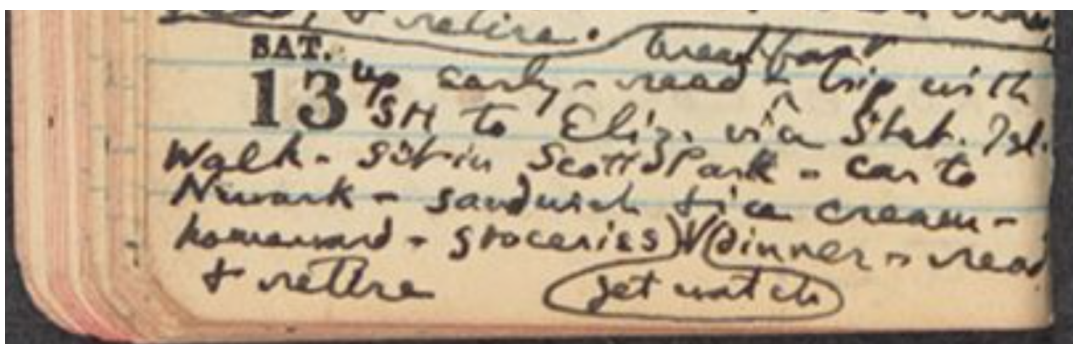 & retire.
SAT.
13 up early - read - breakfast trip with
SH to Eliz. via Stat. Isl.
Walk - sit in Scott Park - car to
Newark - sandwich & ice cream -
homeward - groceries get watch dinner - read
& retire